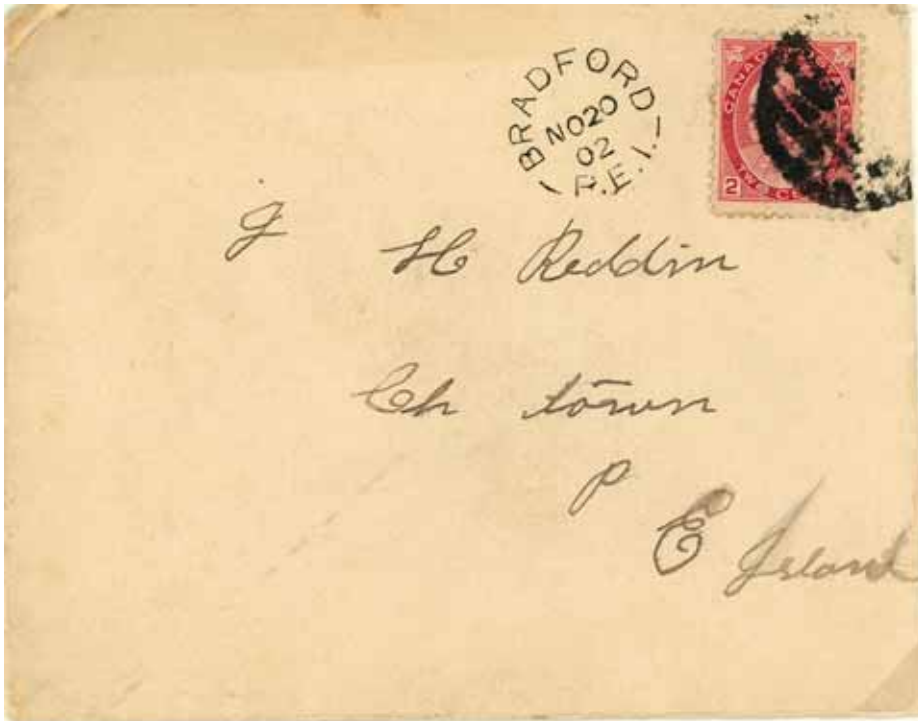 BRADFORD
NO 20
02
P.E.I.
CANADA
2
J H Reddin
Ch town
P
E Island